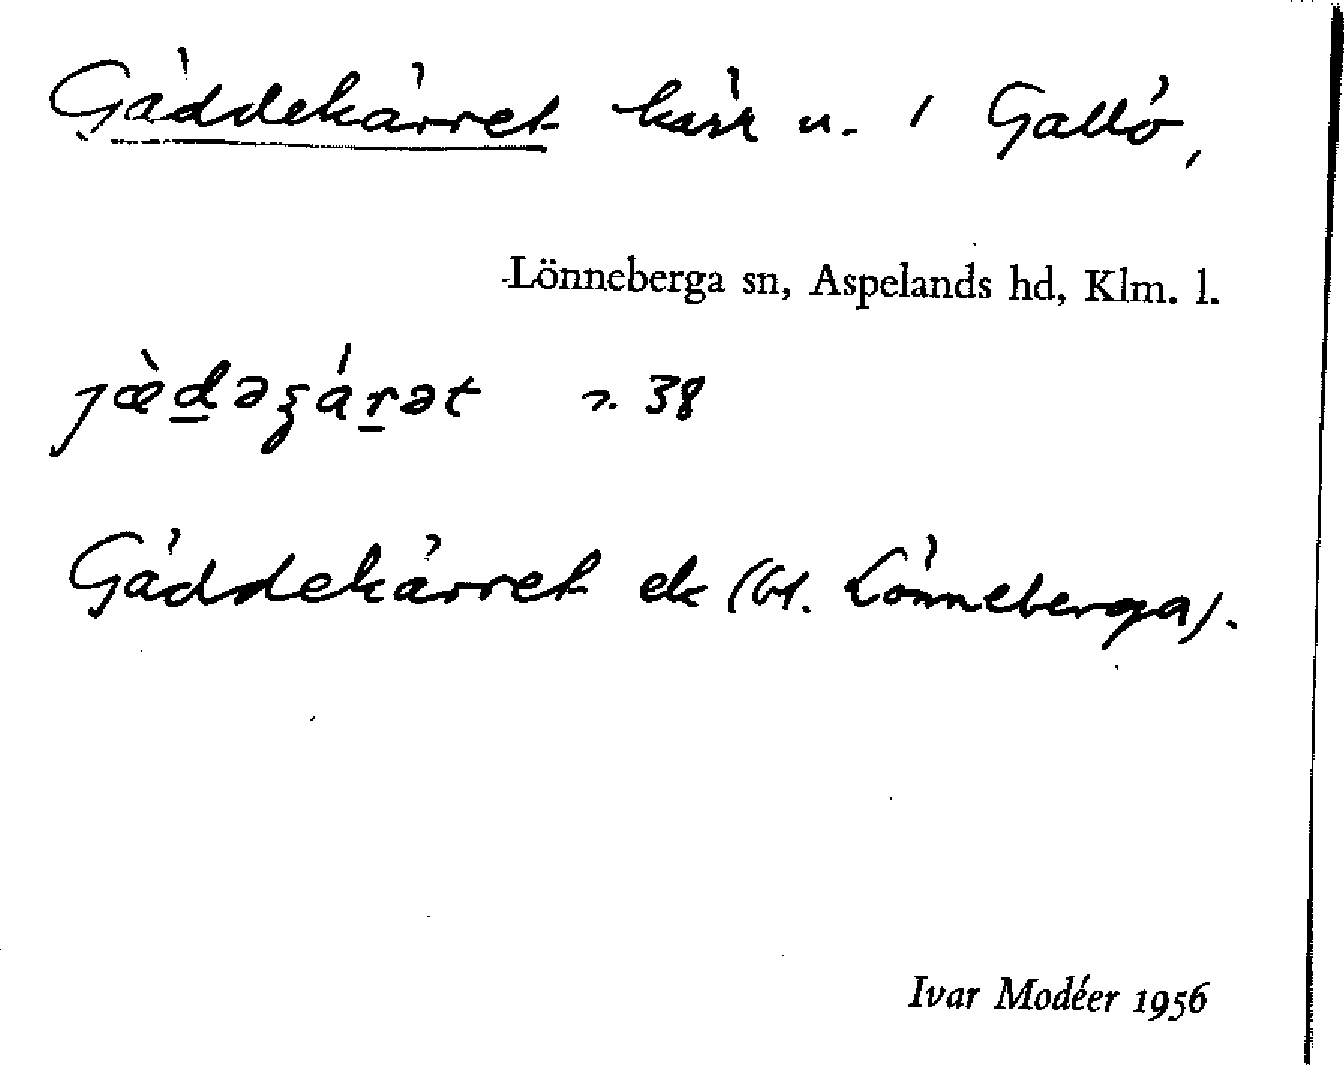 Gäddekärret kärr n. i Gallö,
Lönneberga sn, Aspelands hd, Klm. l.
jæ̀d̲əʒárət 38
Gäddekärret ek (bl. Lönneberga).
Ivar Modéer 1956